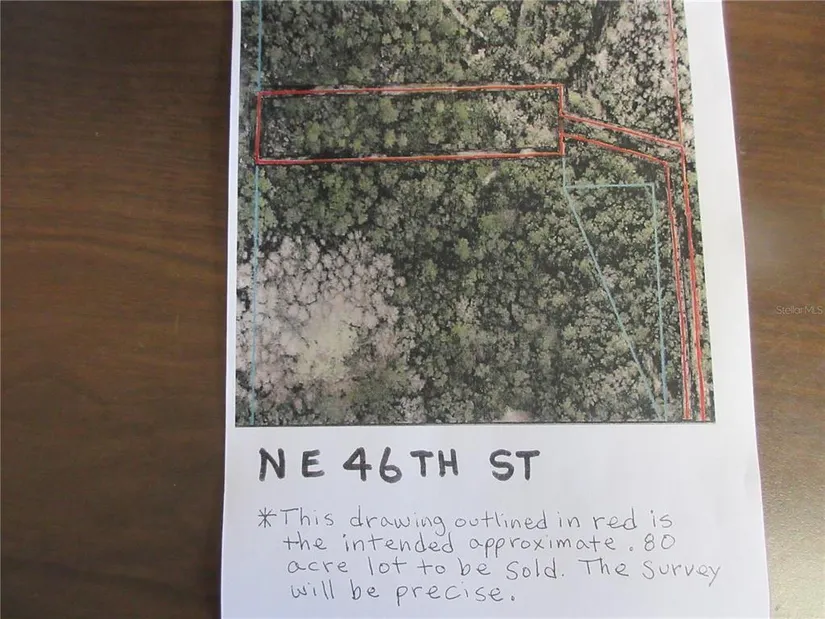 StellarMLS
NE 46TH ST
*This drawing outlined in red is
the intended approximate .80
acre lot to be sold. The survey
will be precise.